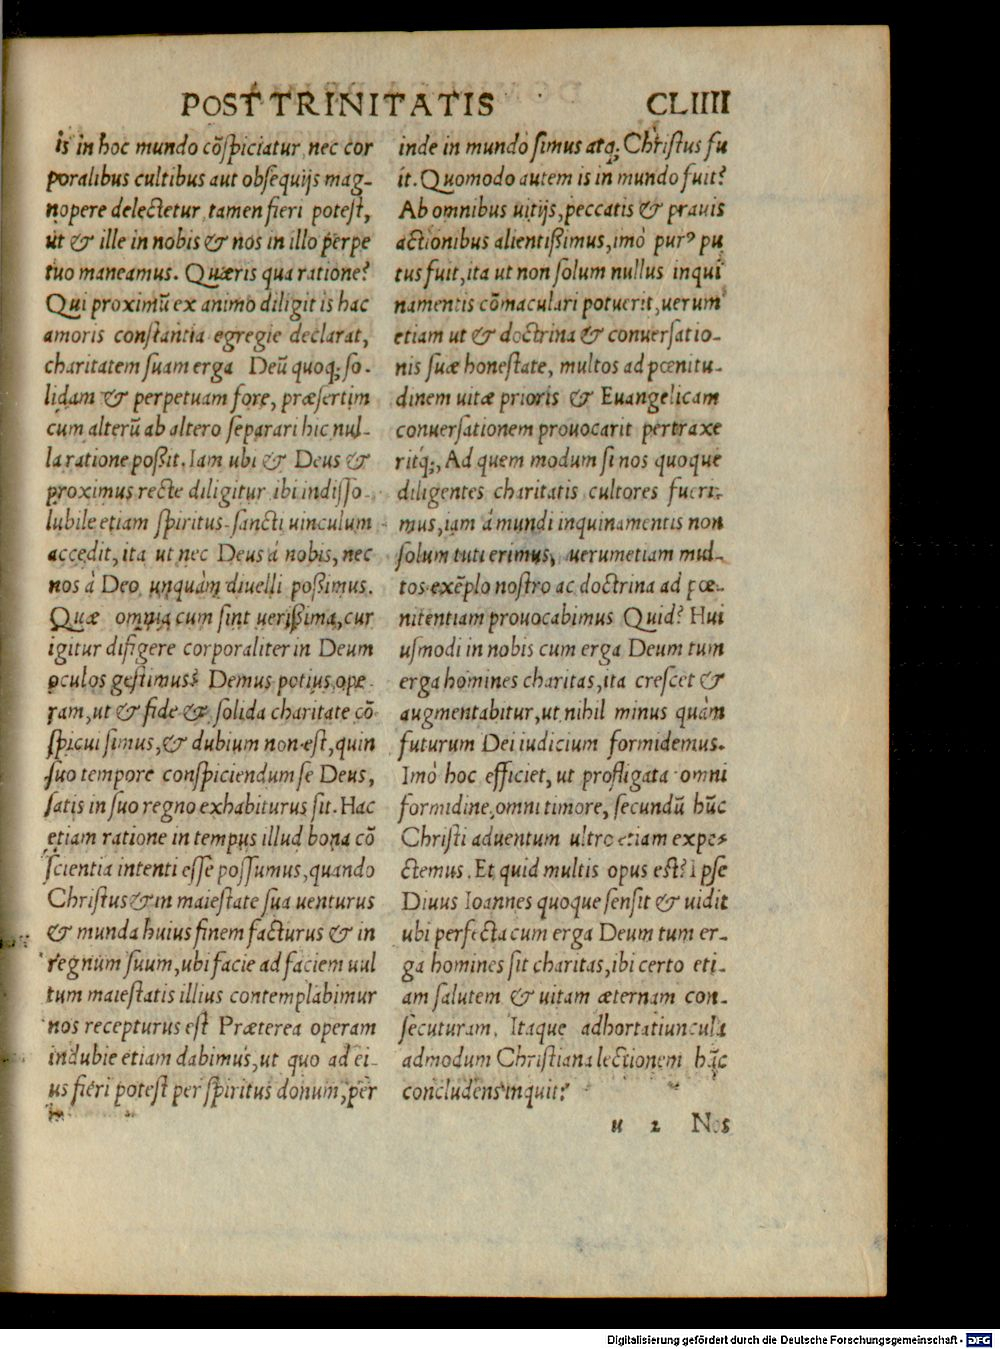 POST TRINITATIS CLIIII
is in hoc mundo cõspiciatur, nec cor
poralibus cultibus aut obsequijs mag-
nopere delectetur, tamen fieri potest,
ut & ille in nobis & nos in illo perpe
tuo maneamus. Quæris qua ratione?
Qui proximũ ex animo diligit is hac
amoris constantia egregie declarat,
charitatem suam erga Deũ quoq; so-
lidam & perpetuam fore, præsertim
cum alterũ ab altero separari hic nul-
la ratione poßit. Iam ubi & Deus &
proximus recte diligitur ibi indisso-
lubile etiam spiritus sancti uinculum
accedit, ita ut nec Deus á nobis, nec
nos à Deo unquàm diuelli poßimus.
Quæ omnia cum sint uerißima, cur
igitur difigere corporaliter in Deum
oculos gestimus? Demus potius ope-
ram, ut & fide & solida charitate cõ
spicui simus, & dubium non est, quin
suo tempore conspiciendum se Deus,
satis in suo regno exhabiturus sit. Hac
etiam ratione in tempus illud bona cõ
scientia intenti esse possumus, quando
Christus & in maiestate sua uenturus
& munda huius finem facturus & in
regnum suum, ubi facie ad faciem uul
tum maiestatis illius contemplabimur
nos recepturus est Præterea operam
indubie etiam dabimus, ut quo ad ei-
us fieri potest per spiritus donum, per
inde in mundo simus atq; Christus fu
it. Quomodo autem is in mundo fuit?
Ab omnibus uitijs, peccatis & prauis
actionibus alientißimus, imò purꝰ pu
tus fuit, ita ut non solum nullus inqui
namentis cõmaculari potuerit, uerum
etiam ut & doctrina & conuersatio-
nis suæ honestate, multos ad pœnitu-
dinem uitæ prioris & Euangelicam
conuersationem prouocarit pertraxe
ritq;, Ad quem modum si nos quoque
diligentes charitatis cultores fueri-
mus, iam á mundi inquinamentis non
solum tuti erimus, uerumetiam mul-
tos exẽplo nostro ac doctrina ad pœ-
nitentiam prouocabimus Quid? Hui
usmodi in nobis cum erga Deum tum
erga homines charitas, ita crescet &
augmentabitur, ut nihil minus quàm
futurum Dei iudicium formidemus.
Imò hoc efficiet, ut profligata omni
formidine, omni timore, secundũ hũc
Christi aduentum ultro etiam expe-
ctemus. Et quid multis opus est? Ipse
Diuus Ioannes quoque sensit & uidit
ubi perfecta cum erga Deum tum er-
ga homines sit charitas, ibi certo eti-
am salutem & uitam æternam con-
secuturam. Itaque adhortatiuncula
admodum Christiana lectionem hãc
concludens inquit:
u 2 Nos
Digitalisierung gefördert durch die Deutsche Forschungsgemeinschaft - DFG